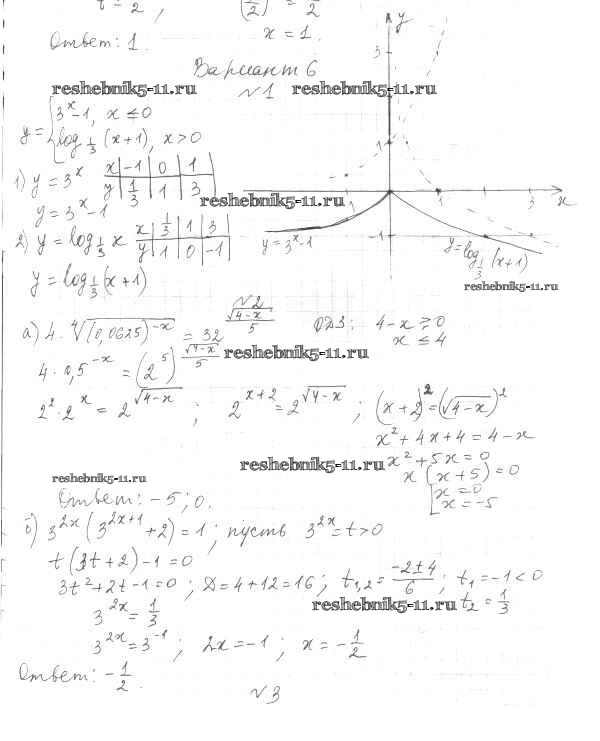 t = 2 ; (/2) = /2
Ответ: 1. x = 1.
Вариант 6
reshebnik5-11.ru №1 reshebnik5-11.ru
y = { 3^x - 1, x ≤ 0
log_{1/3} (x+1), x > 0
1) y = 3^x x | -1 | 0 | 1
y | 1/3 | 1 | 3
y = 3^x - 1
reshebnik5-11.ru
2) y = log_{1/3} x x | 1/3 | 1 | 3
y | 1 | 0 | -1
y = log_{1/3} (x+1)
y
3
1
-1
1
3
x
y = 3^x - 1
y = log_{1/3} (x+1)
reshebnik5-11.ru
№2
а) 4 · ⁴√(0,0625)^{-x} = 32^{√(4-x)/5} ОДЗ: 4 - x ≥ 0
x ≤ 4
4 · 0,5^{-x} = (2^5)^{√(4-x)/5} reshebnik5-11.ru
2^2 · 2^x = 2^{√(4-x)} ; 2^{x+2} = 2^{√(4-x)} ; (x+2)^2 = (√(4-x))^2
x^2 + 4x + 4 = 4 - x
reshebnik5-11.ru x^2 + 5x = 0
reshebnik5-11.ru x (x + 5) = 0
[ x = 0
x = -5
Ответ: -5; 0.
б) 3^{2x} (3^{2x+1} + 2) = 1 ; пусть 3^{2x} = t > 0
t (3t + 2) - 1 = 0
3t^2 + 2t - 1 = 0 ; D = 4 + 12 = 16 ; t_{1,2} = (-2 ± 4)/6 ; t_1 = -1 < 0
3^{2x} = 1/3 reshebnik5-11.ru t_2 = 1/3
3^{2x} = 3^{-1} ; 2x = -1 ; x = -1/2
Ответ: -1/2.
№3